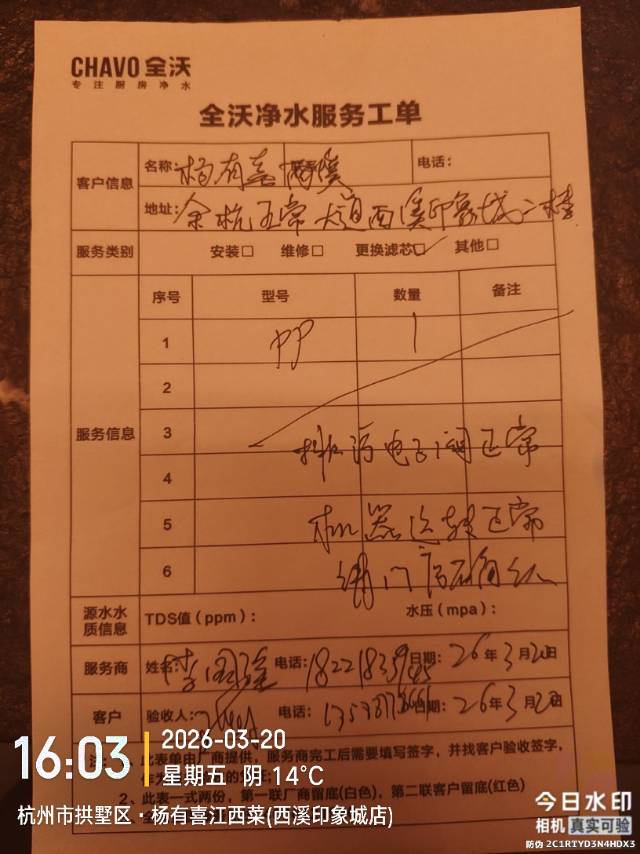 CHAVO 全沃
专注厨房净水
全沃净水服务工单
客户信息 名称: 杨有喜 西溪 电话:
地址: 余杭五常大道西溪印象城二楼
服务类别 安装□ 维修□ 更换滤芯□✓ 其他□
序号 型号 数量 备注
服务信息
1 PP 1
2
3 排污电子阀正常
4
5 机器运转正常
6
源水水质信息 TDS值(ppm): 水压(mpa):
服务商 姓名: 电话: 日期: 26年3月20日
客户 验收人: 电话: 日期: 26年3月20日
此表单由厂商提供,服务商完工后需要填写签字,并找客户验收签字,
2、此表一式两份,第一联厂商留底(白色),第二联客户留底(红色)
16:03
2026-03-20
星期五 阴 14℃
杭州市拱墅区·杨有喜江西菜(西溪印象城店)
今日水印
相机 真实可验
防伪 2C1RTYD3N4HDX3